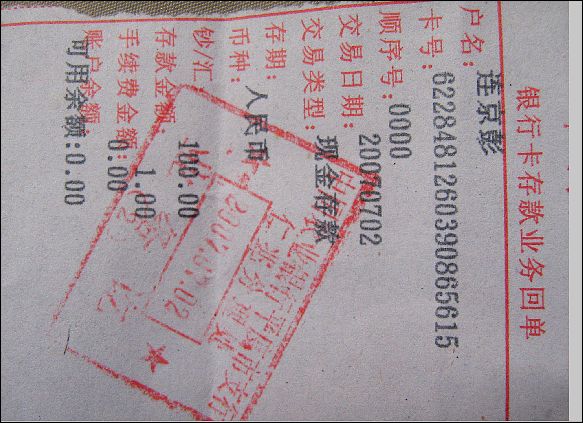 银行卡存款业务回单
户名: 连京彭
卡号: 6228481260390865615
顺序号: 0000
交易日期: 20070702
交易类型: 现金存款
存期:
币种: 人民币
钞/汇
存款金额: 100.00
手续费金额: 1.00
账户余额: 0.00
可用余额: 0.00
2007.07.02